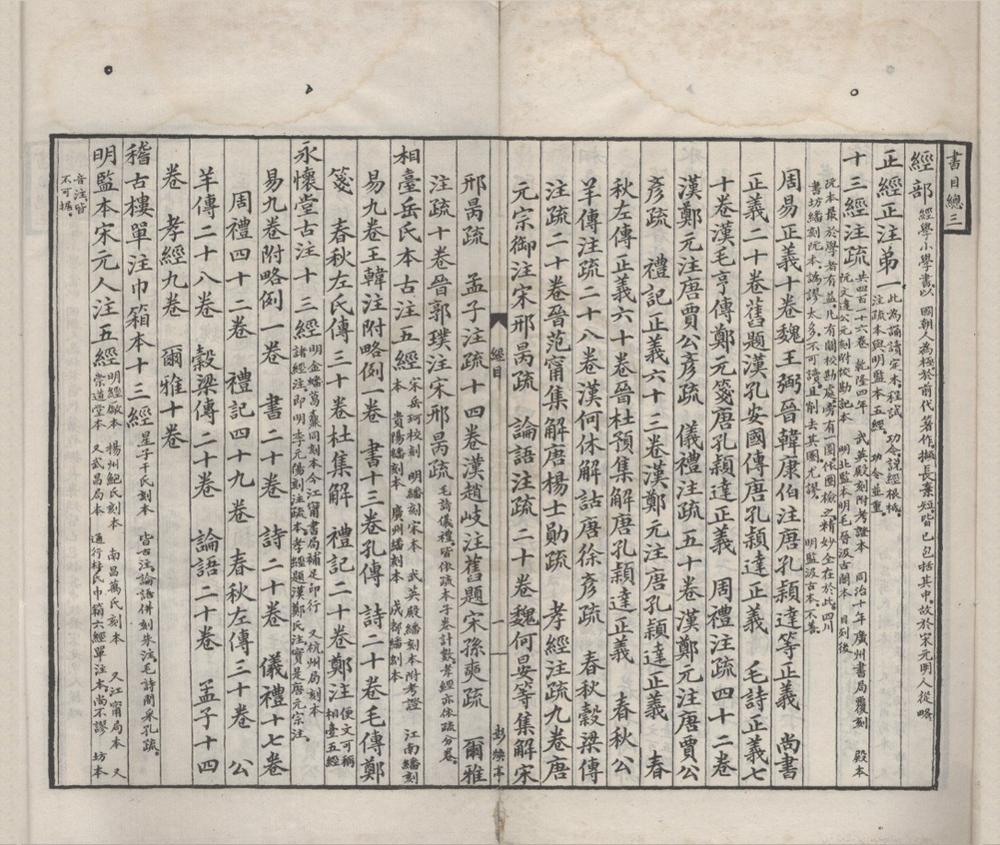 書目總三
經部經學小學書以 國朝人為極於前代著作擷長棄短皆已包括其中故於宋元明人從略
正經正注弟一此為誦讀定本程試功令說經根柢注疏本與明監本五經功令並重
十三經注疏共四百十六卷 乾隆四年 武英殿刻附考證本 同治十年廣州書局覆刻 殿本
阮文達公元刻附校勘記本 明北監本明毛晉汲古閣本 目列後
阮本最於學者有益凡有關校勘處旁有一圈依圈檢之精妙全在於此四川
書坊繙刻阮本譌謬太多不可讀且削去其圈尤謬 明監汲古本不善
周易正義十卷魏王弼晉韓康伯注唐孔穎達等正義 尚書
正義二十卷舊題漢孔安國傳唐孔穎達正義 毛詩正義七
十卷漢毛亨傳鄭元箋唐孔穎達正義 周禮注疏四十二卷
漢鄭元注唐賈公彥疏 儀禮注疏五十卷漢鄭元注唐賈公
彥疏 禮記正義六十三卷漢鄭元注唐孔穎達正義 春
秋左傳正義六十卷晉杜預集解唐孔穎達正義 春秋公
羊傳注疏二十八卷漢何休解詁唐徐彥疏 春秋穀梁傳
注疏二十卷晉范甯集解唐楊士勛疏 孝經注疏九卷唐
元宗御注宋邢昺疏 論語注疏二十卷魏何晏等集解宋
經目 一
邢昺疏 孟子注疏十四卷漢趙岐注舊題宋孫奭疏 爾雅
注疏十卷晉郭璞注宋邢昺疏毛詩儀禮皆依疏本子卷計數孝經亦依疏分卷
相臺岳氏本古注五經宋岳珂校刻 明繙刻宋本 武英殿繙刻本附考證 江南繙刻本 貴陽繙刻本 廣州繙刻本 成都繙刻本
易九卷王韓注附略例一卷 書十三卷孔傳 詩二十卷毛傳鄭
箋 春秋左氏傳三十卷杜集解 禮記二十卷鄭注便文可稱相臺五經
永懷堂古注十三經明金蟠葛鼒同刻本今江甯書局補足印行 又杭州局刻本諸經注即明李元陽刻注疏本孝經題漢鄭氏注實是唐元宗注
易九卷附略例一卷 書二十卷 詩二十卷 儀禮十七卷
周禮四十二卷 禮記四十九卷 春秋左傳三十卷 公
羊傳二十八卷 穀梁傳二十卷 論語二十卷 孟子十四
卷 孝經九卷 爾雅十卷
稽古樓單注巾箱本十三經星子干氏刻本 皆古注論語併刻朱注毛詩閒采孔疏
明監本宋元人注五經明經廠本 揚州鮑氏刻本 南昌萬氏刻本 又江甯局本 又崇道堂本 又武昌局本 通行杜氏巾箱六經單注本尚不謬 坊本
音注皆不可據